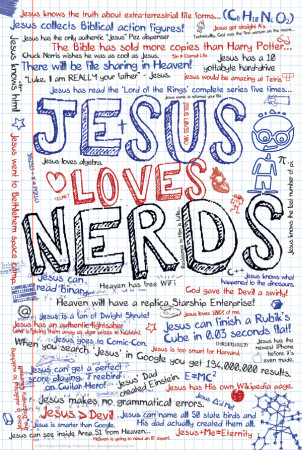 Jesus knows the truth about extra-terrestrial life forms...
Jesus collects Biblical action figures!
Jesus got straight A's
Jesus has the only authentic "Jesus" Pez dispenser
The Bible has sold more copies than Harry Potter...
Chuck Norris wishes he was as cool as Jesus.
There will be file sharing in Heaven!
Jesus has a 10
gottabyte handdrive
"Luke, I am REALLY your father" - Jesus.
Jesus would be amazing at Tetris
Jesus has read the 'Lord of the Rings' complete series five times...
Jesus knows html
JESUS
Jesus loves algebra.
LOVES
NERDS
Jesus went to Bethlehem space camp.
Jesus knows the last number of pi.
π
C++
Jesus can
read binary.
Heaven has free WiFi
Jesus knows what
happened to the dinosaurs.
God gave the Devil a swirly!
Heaven will have a replica Starship Enterprise!
@
Jesus is a fan of Dwight Shrute!
Jesus loves 100% of me.
Jesus has an authentic lightsaber
Jesus can finish a Rubik's
Cube in 0.03 seconds flat!
Jesus goes to Comic-Con.
Jesus has the
newest iPhone
before it's
even made.
When you search 'Jesus' in Google you get 194,000,000 results.
Jesus is too smart for Harvard
Jesus can get a perfect
score playing 'Freebird'
on Guitar Hero!
Jesus' Dad
created Einstein.
E=MC²
Jesus has His own Wikipedia page.
Jesus makes no grammatical errors.
Jesus > Devil
Jesus can name all 50 state birds and
His dad actually created them all.
Jesus is smarter than Google.
Jesus can see inside Area 51 from Heaven...
Jesus+Me=Eternity
Heaven is going to need an IT expert.